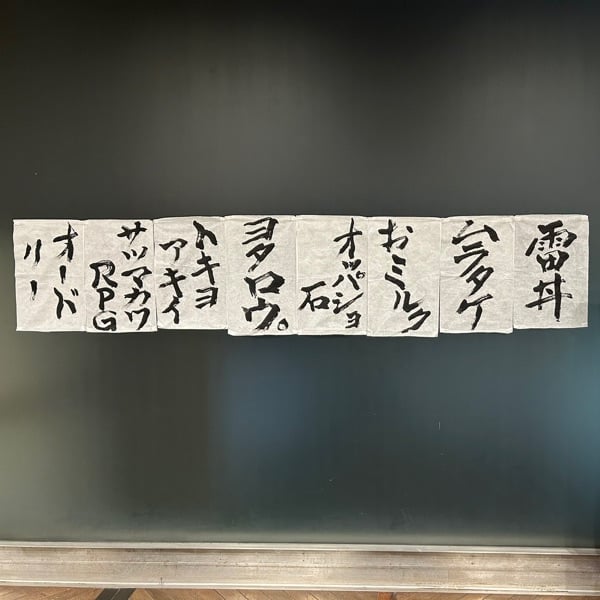 雷丼
ムラタケ
おミルク
オッパショ
石
ヨタロウ。
トキヨ
アキイ
サツマカワ
RPG
オード
リー